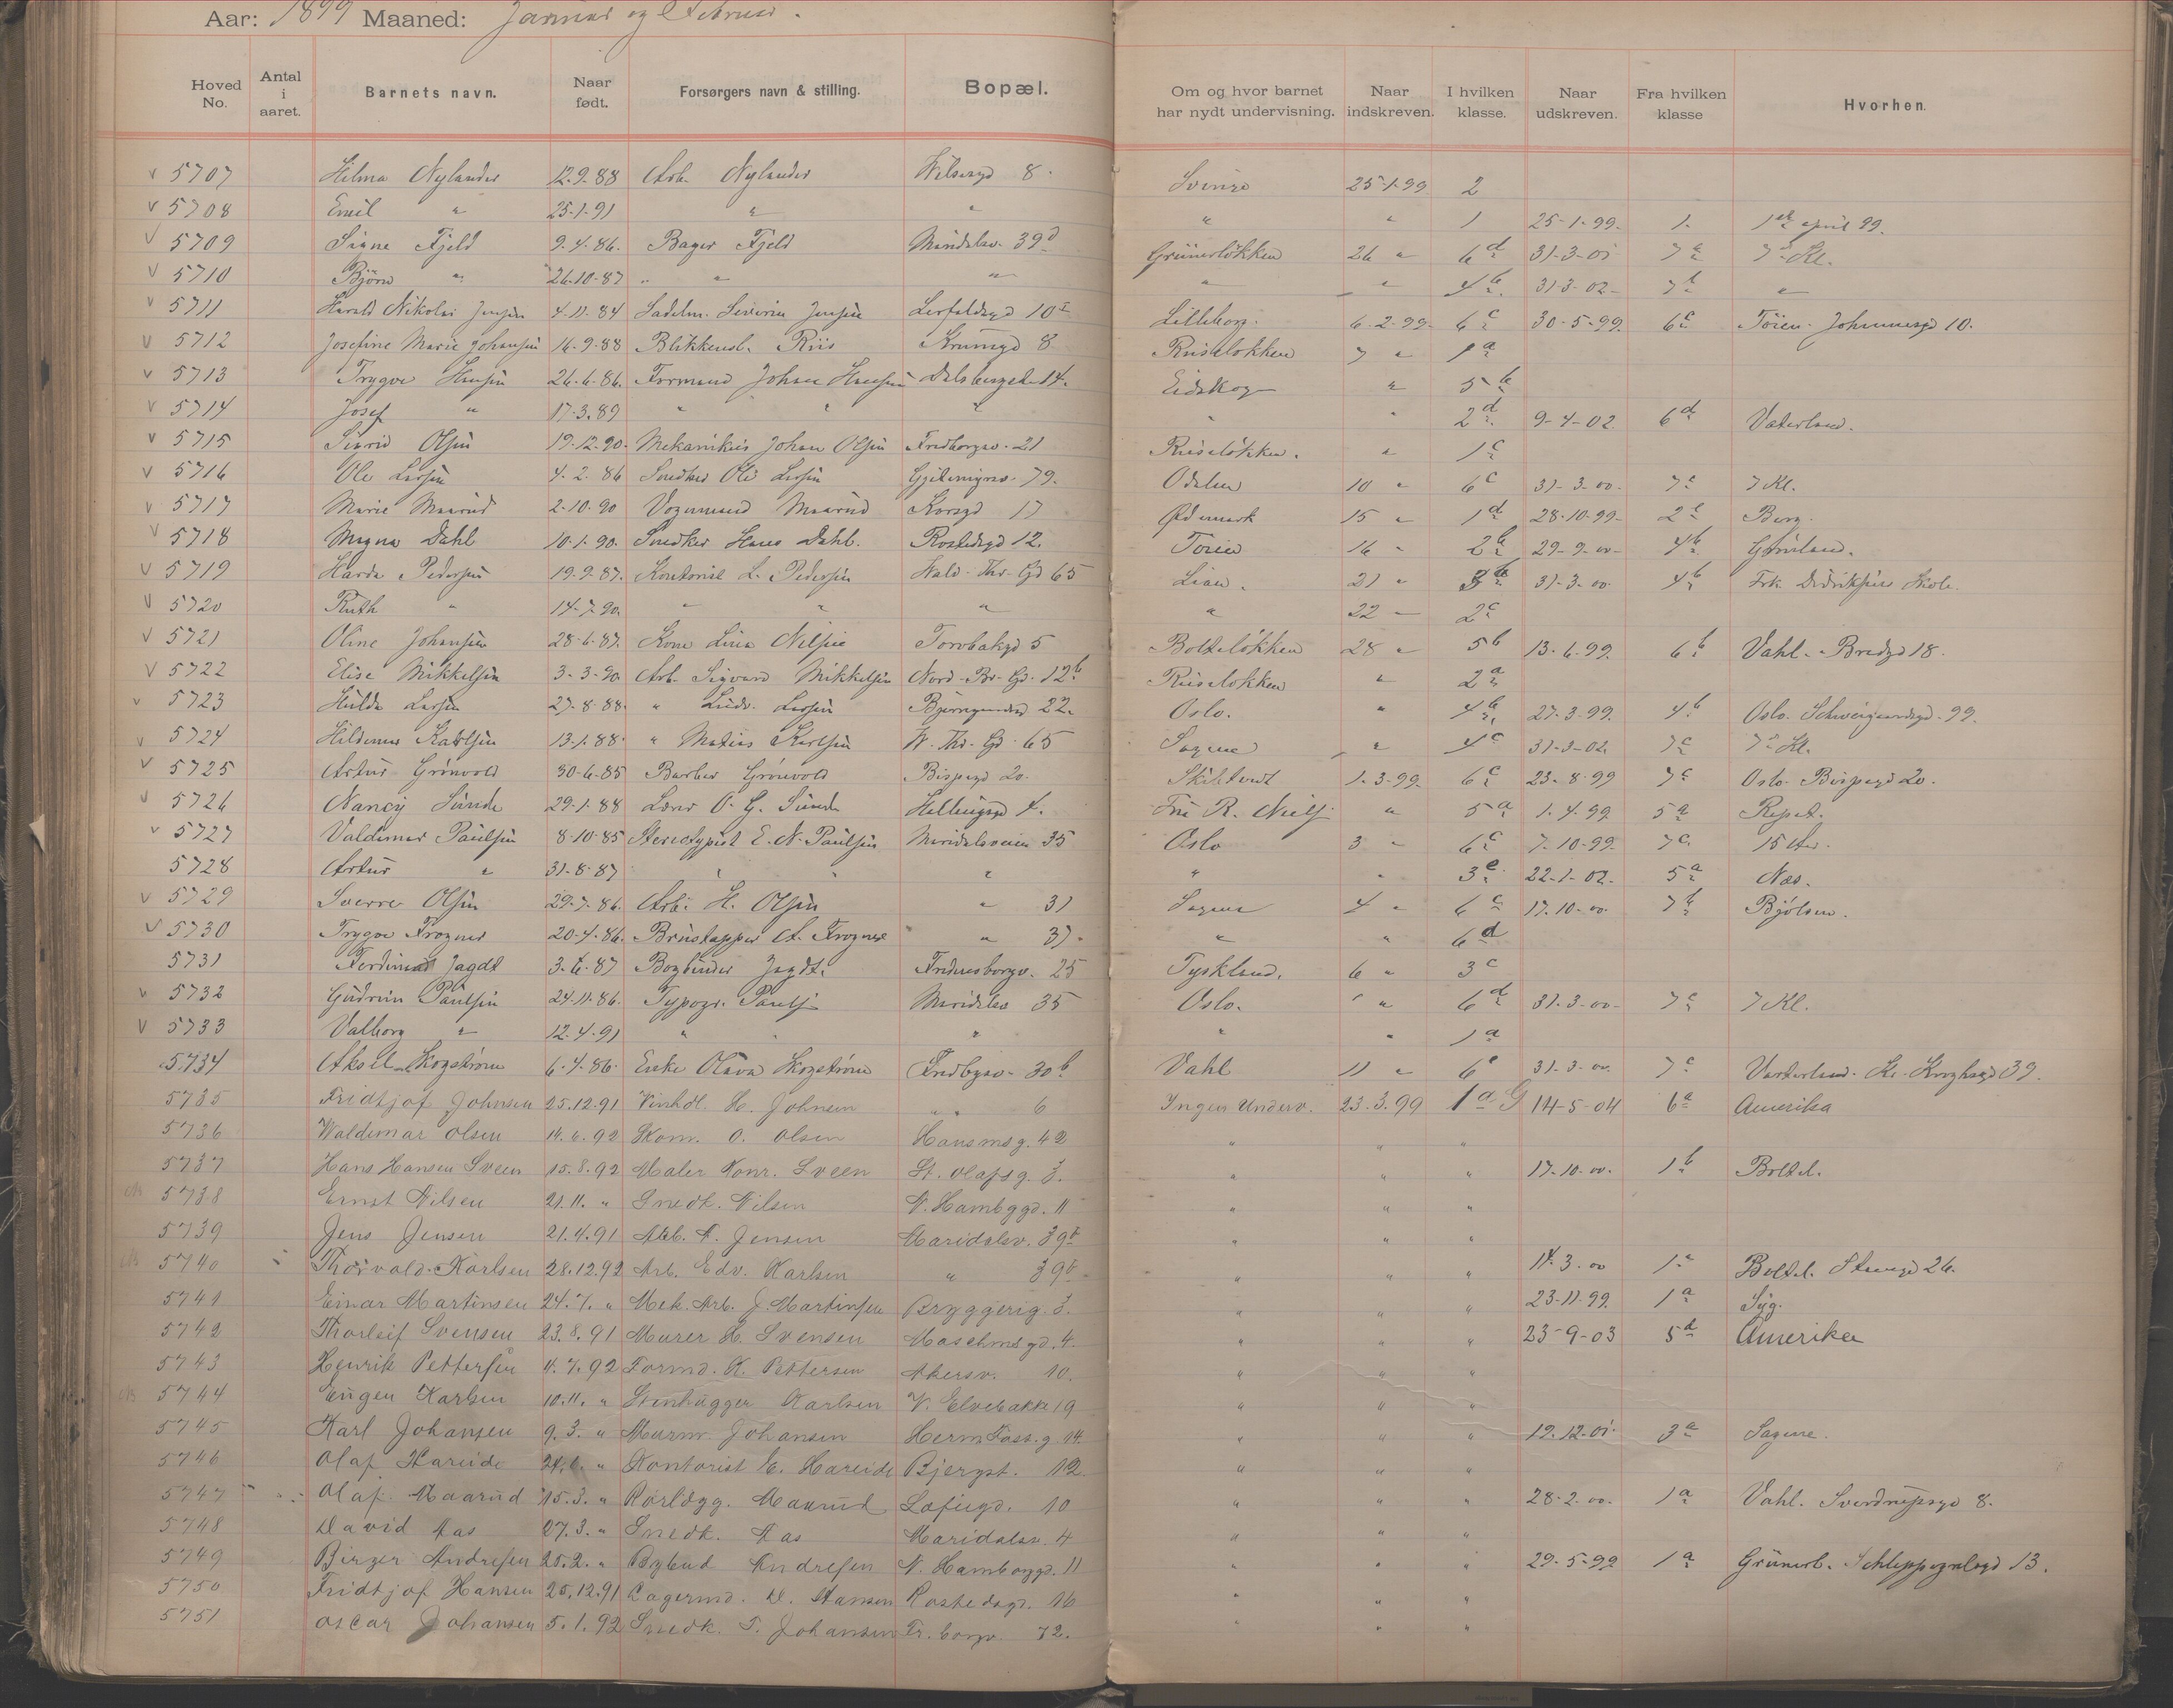 Aar: 1899 Maaned: Januar og Februar.
Hoved No. Antal i aaret. Barnets navn. Naar født. Forsørgers navn & stilling. Bopæl. Om og hvor barnet har nydt undervisning. Naar indskreven. I hvilken klasse. Naar udskreven. Fra hvilken klasse Hvorhen.
v 5707 Hilma Nylander 12.9.88 Arb. Nylander 8. 25-1-99 2
v 5708 Emil " 25-1-91 " " " " 1 25-1-99. 1. 1ste april 99.
v 5709 Signe Fjeld 9.4.86. Bager Fjeld Maridalsv. 39d Grünerløkken 26 " 6d 31-3-01 7a 7de Kl.
v 5710 Bjørn " 26-10-87 " " " " " 4b. 31-3-02- 7b "
v 5711 Harald Nikolai Jensen 4-11-84 Sadelm. Severin Jensen 10I Lilleborg. 6-2-99- 6c 30-5-99. 6c Tøien. Johannesgd 10.
v 5712 Josefine Marie Johansen 16-9-88 Blikkensl. Riis Krumgd 8 Ruseløkken 7 " 1a
v 5713 Trygve Hansen 26-6-86. Formand Johan Hansen Dalsbergst. 14. Eidskog " 5b
v 5714 Josef " 17-3.89 " " " " " 2d 9-4-02 6d Vaterland.
v 5715 Sigrid Olsen 19-12-90. Mekanikus Johan Olsen Fredborgsv. 21 Ruseløkken. " 1c
v 5716 Ole Larsen 4-2-86 Snedker Ole Larsen 79. Odalen 10 " 6c 31-3-00. 7c 7 Kl.
v 5717 Marie Maarud 2-10-90 Vognmand Maarud Korsgd 17 Ødemark 15 " 1d 28-10-99- 2c Berg.
v 5718 Magna Dahl 10-1-90. Snedker Hans Dahl. Rostedsgd 12. Tøien 16 " 2b 29-9-00- 4b Grønland.
v 5719 Harda Pedersen 19.9.87. Kontorist L. Pedersen Wald. Thr. Gd 65 Lian. 21 " 3b 31-3-00. 4b Frk. Didriksens Skole.
v 5720 Ruth " 14-7-90. " " " " 22 — 2c
v 5721 Oline Johansen 28-6-87. Kone Lina Nilsen Torvbakgd 5 Bolteløkken 28 " 5b 13-6-99. 6b Vahl. Bredgd 18.
v 5722 Elise Mikkelsen 3-3-90 Arb. Sigvard Mikkelsen Nord-Br-Gd. 12b Ruseløkken " 2a
v 5723 Hulda Larsen 27-8-88. " Ludv. Larsen 22. Oslo. " 4b 27-3-99. 4b Oslo. Schweigaardsgd. 99.
v 5724 Karlsen 13-1-88. " Matias Karlsen W. Thr. Gd. 65 Sagene " 4c 31-3-02. 7c 7de Kl.
v 5725 Artur Grønvold 30-6-85 Barber Grønvold Bispegd 20. 1-3-99. 6c 23-8-99 7c Oslo. Bispegd 20.
v 5726 Nancy Sunde 29-1-88 Lærer O. G. Sunde 4. Fru R. Niels " 5a 1.4.99. 5a Repet.
v 5727 Valdemar Paulsen 8-10-85 Stereotypist E. N. Paulsen Maridalsveien 35 Oslo 3 " 6c 7-10-99. 7c. 15 Aar.
5728 Artur " 31-8-87 " " " " " 3e 22-1-02. 5a Næs.
v 5729 Sverre Olsen 29-7-86. Arb. H. Olsen " 31 Sagene 4 " 6c 17-10-00. 7b Bjølsen.
v 5730 Trygve Frogner 20-4-86. Brustapper A. Frogner " 37. " " 6d
5731 Ferdinand Jagdt 3-6-87 Bogbinder Jagdt. Fredensborgv. 25 Tyskland. 6 " 3c
v 5732 Gudrun Paulsen 24-11-86. Typogr. Pauls Maridalsv 35 Oslo. " " 6d 31-3-00- 7c 7 Kl.
v 5733 Valborg " 12-4-91 " " " " 1a
5734 Aksel Skogstrøm 6-4-86. Enke Olava Skogstrøm 30b Vahl 11 " 6c 31-3-00. 7c Vaterland. Kr. Kroghsgd 39.
5735 Fridtjof Johnsen 25.12.91 Vinhdl. H. Johnsen " " 6 Ingen Underv. 23.3.99 1a G 14-5-04 6a Amerika
5736 Waldemar Olsen 14.6.92 O. Olsen Hausmsg. 42 " " "
5737 Hans Hansen Sveen 15.8.92 Maler Konr. Sveen St. Olafsg. 3. " " " 17-10-00. 1b Boltel.
5738 Ernst Nilsen 21.11. " Snedk. Nilsen N. Hambggd. 11 " " "
5739 Jens Jensen 21.4.91 Arb. A. Jensen Maridalsv. 39b " " "
5740 Thorvald Karlsen 28.12.92 Arb. Edv. Karlsen " 39b " " " 14.3.00 1a Boltel. 26.
5741 Einar Martinsen 24.7. " Mek. Arb. J. Martinsen Bryggerig. 3. " " " 23-11-99. 1a Syg.
5742 Thorleif Svensen 23.8.91 Murer H. Svensen Maschmsgd. 4. " " " 23-9-03 5d Amerika
5743 Henrik Pettersen 11.7.92 Formd. K. Pettersen Akersv. 10. " " "
5744 Eugen Karlsen 10.11. " Stenhugger Karlsen V. Elvebakke 19 " " "
5745 Karl Johansen 9.3. " Murm. Johansen Herm Foss. g. 14. " " " 19-12-01. 3a Sagene.
5746 Olaf Hareide 24.6. " Kontorist E. Hareide Bjergst. 12 " " "
5747 Olaf Maarud 15.3. " Rørlægg. Maarud 10 " " " 28-2-00. 1a Vahl. Sverdrupsgd 8.
5748 David Aas 27.3. " Snedk. Aas Maridalsv. 4 " " "
5749 Birger Andresen 25.2. " Bybud Andresen N. Hamborggd. 11 " " " 29-5-99 1a Grünerl. Schleppegrelsgd 13.
5750 Fridtjof Hansen 25.12.91 Lagermd. D. Hansen Rostedsgd. 16 " " "
5751 Oscar Johansen 5.1.92 Snedk. T. Johansen Fr. borgv. 72. " " "